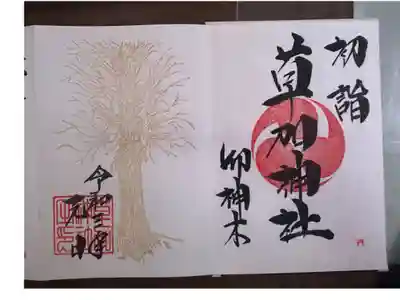 初詣
草加神社
御神木
令和三年
元旦